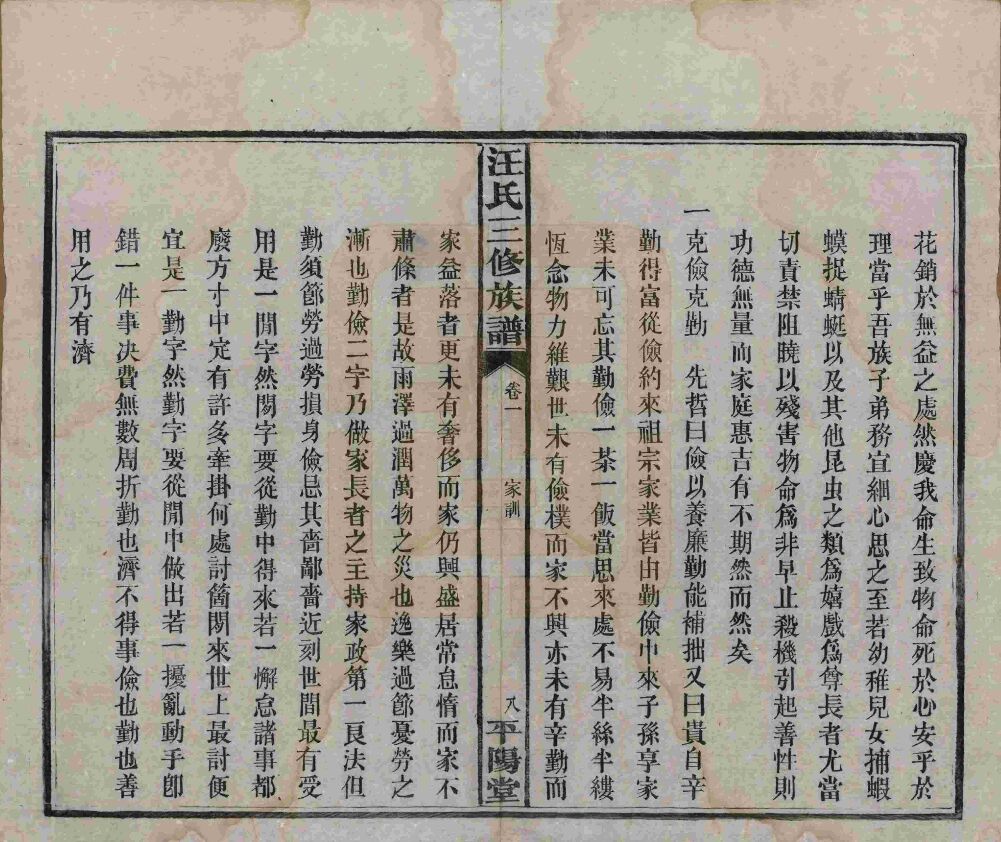 花銷於無益之處然慶我命生致物命死於心安乎於
理當乎吾族子弟務宜細心思之至若幼稚兒女捕蝦
蟆捉蜻蜓以及其他昆虫之類爲嬉戲爲尊長者尤當
切責禁阻曉以殘害物命爲非早止殺機引起善性則
功德無量而家庭惠吉有不期然而然矣
一克儉克勤　先哲曰儉以養廉勤能補拙又曰貴自辛
勤得富從儉約來祖宗家業皆由勤儉中來子孫享家
業未可忘其勤儉一茶一飯當思來處不易半絲半縷
恆念物力維艱世未有儉樸而家不興亦未有辛勤而
汪氏三修族譜
卷一
家訓
八
平陽堂
家益落者更未有奢侈而家仍興盛居常怠惰而家不
肅條者是故雨澤過潤萬物之災也逸樂過節憂勞之
漸也勤儉二字乃做家長者之主持家政第一良法但
勤須節勞過勞損身儉忌其嗇鄙嗇近刻世間最有受
用是一閒字然閒字要從勤中得來若一懈怠諸事都
廢方寸中定有許多牽掛何處討箇閒來世上最討便
宜是一勤字然勤字要從閒中做出若一擾亂動手卽
錯一件事決費無數周折勤也濟不得事儉也勤也善
用之乃有濟